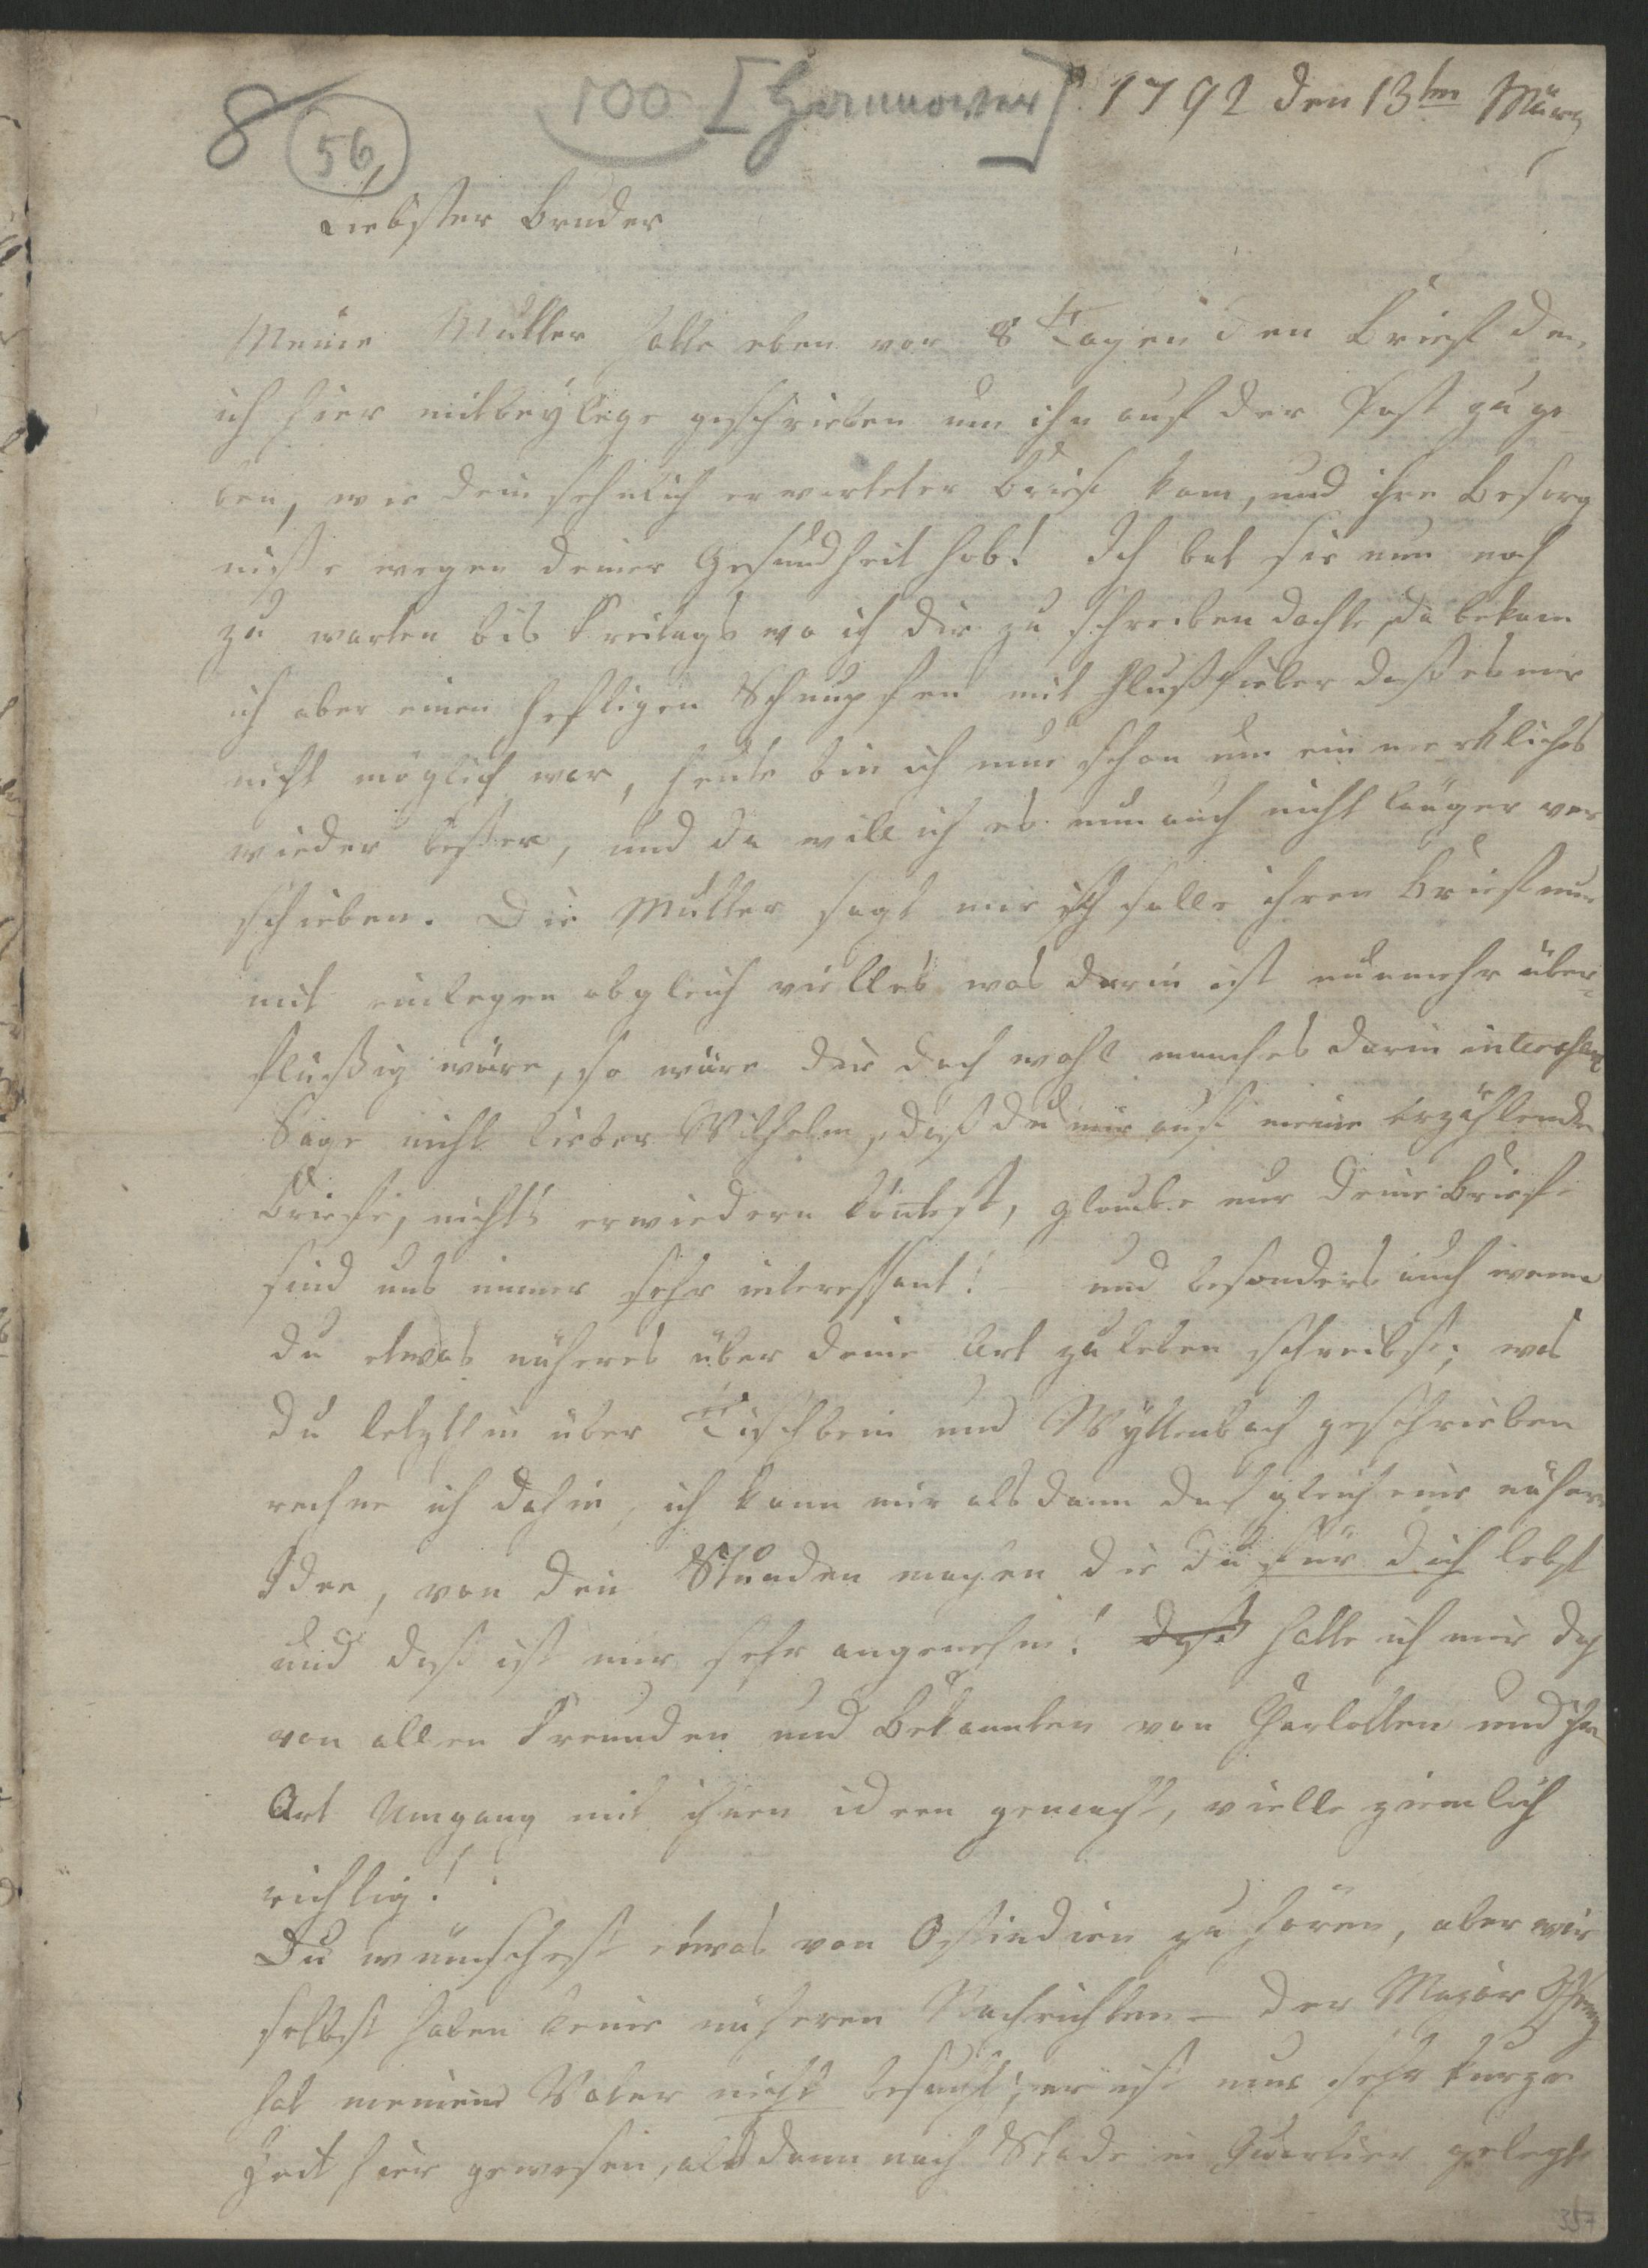 8 56 100 [Hannover] 1792 den 13ten März
Liebster Bruder
Meine Mutter hatte eben vor 8 Tagen den Brief den
ich hier mitbeylege geschrieben um ihn auf der Post zu ge
ben, wie dein sehnlich erwarteter Brief kam, und ihre Besorg
niße wegen deiner Gesundheit hob! Ich bat sie nun noch
zu warten bis Freitags wo ich dir zu schreiben dachte, da bekam
ich aber einen heftigen Schnupfen mit Flußfieber daß es mir
nicht möglich war, heute bin ich nun schon um ein merkliches
wieder beßer, und da will ich es nun auch nicht länger ver
schieben. Die Mutter sagt mir ich solle ihren Brief nur
mit einlegen obgleich vielles was darin ist nunmehr über-
flüßig wäre, so wäre dir doch wohl manches darin interessant
Sage nicht lieber Wilhelm, daß du mir auf meine erzählende
Briefe, nichts erwiedern köntest, glaube nur deine Briefe
sind uns immer sehr interessant! – und besonders auch wenn
du etwas näheres über deine Art zu leben schreibst; was
du letzthin über Tischbein und Wyttenbach geschrieben
rechne ich dahin, ich kann mir alsdann doch gleich eine nähere
Idee, von den Stunden machen die du für dich lebst
und daß ist mir sehr angenehm! daß hatte ich mir doch
von allen Freunden und Bekannten von Charlotten und ihre
Art Umgang mit ihnen ideen gemacht, vielle ziemlich
richtig!
Du wünschest etwas von Ostindien zu hören, aber wir
selbst haben keine näheren Nachrichten – der Major
hat meinen Vater nicht besucht; er ist nur sehr kurze
Zeit hier gewesen, alsdann nach Stade in Quartier gelegt